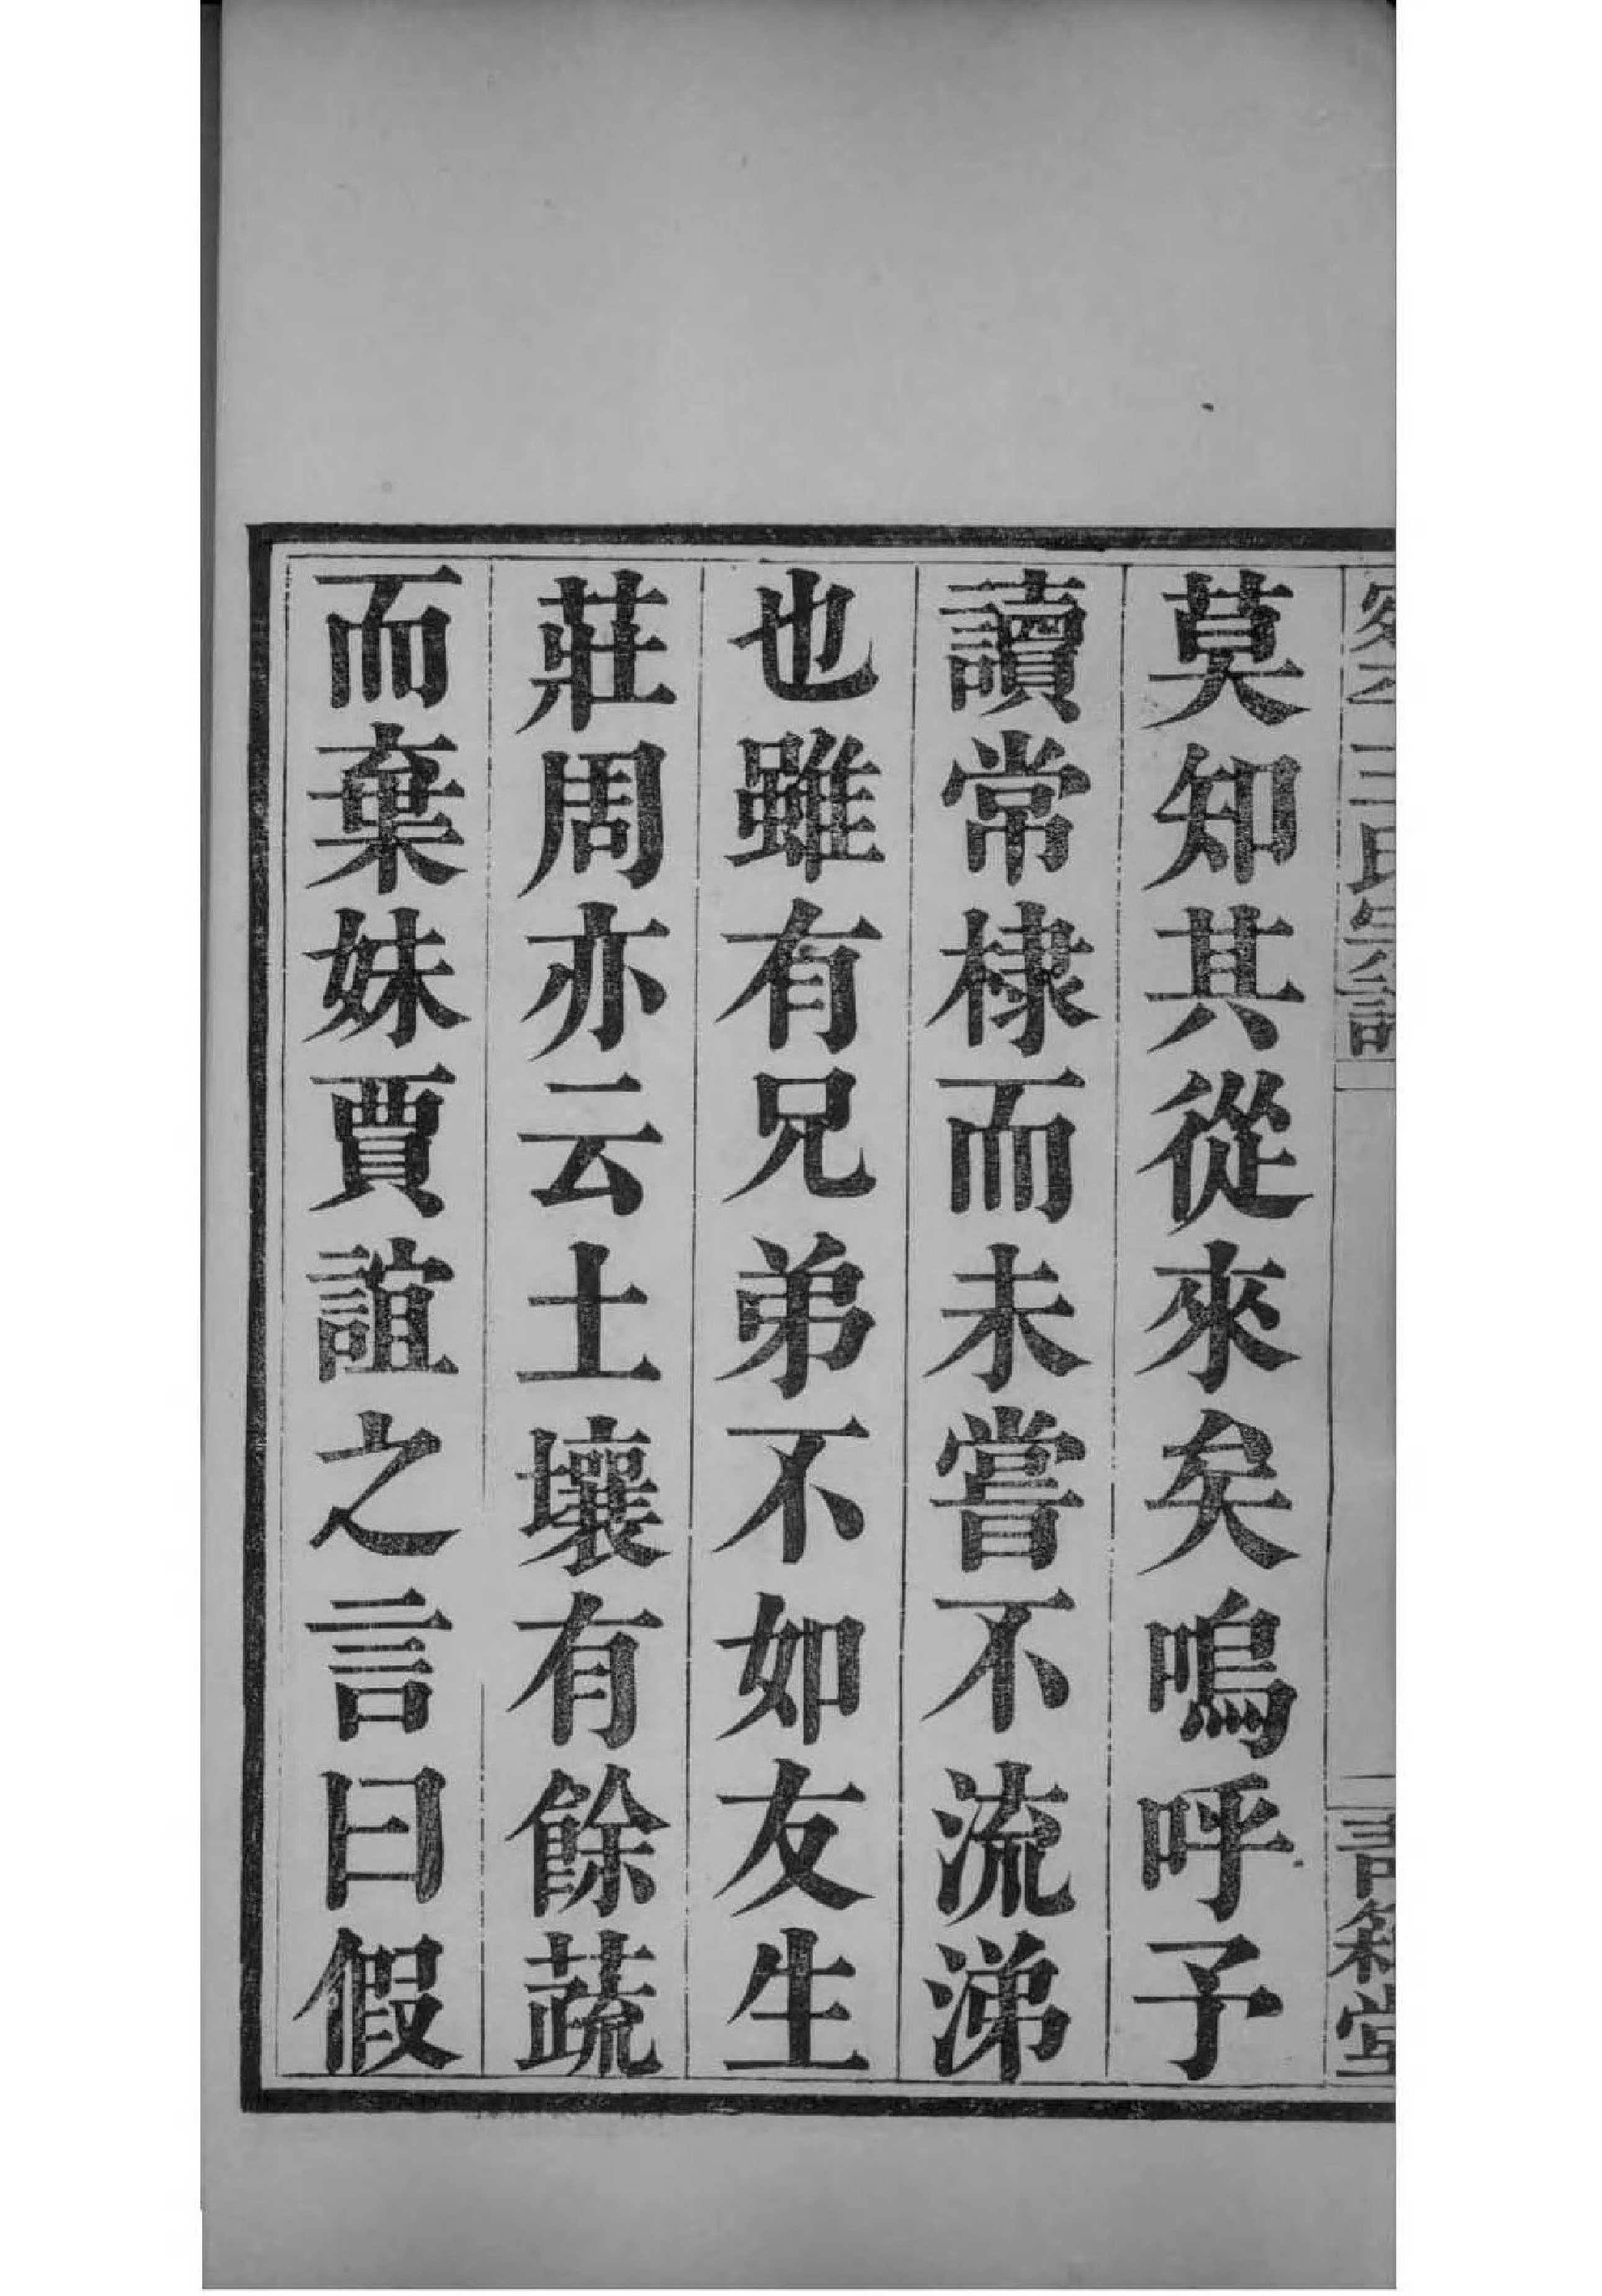 王氏宗譜
書錦堂
莫知其從來矣嗚呼予
讀常棣而未嘗不流涕
也雖有兄弟不如友生
莊周亦云土壤有餘蔬
而棄妹賈誼之言曰假